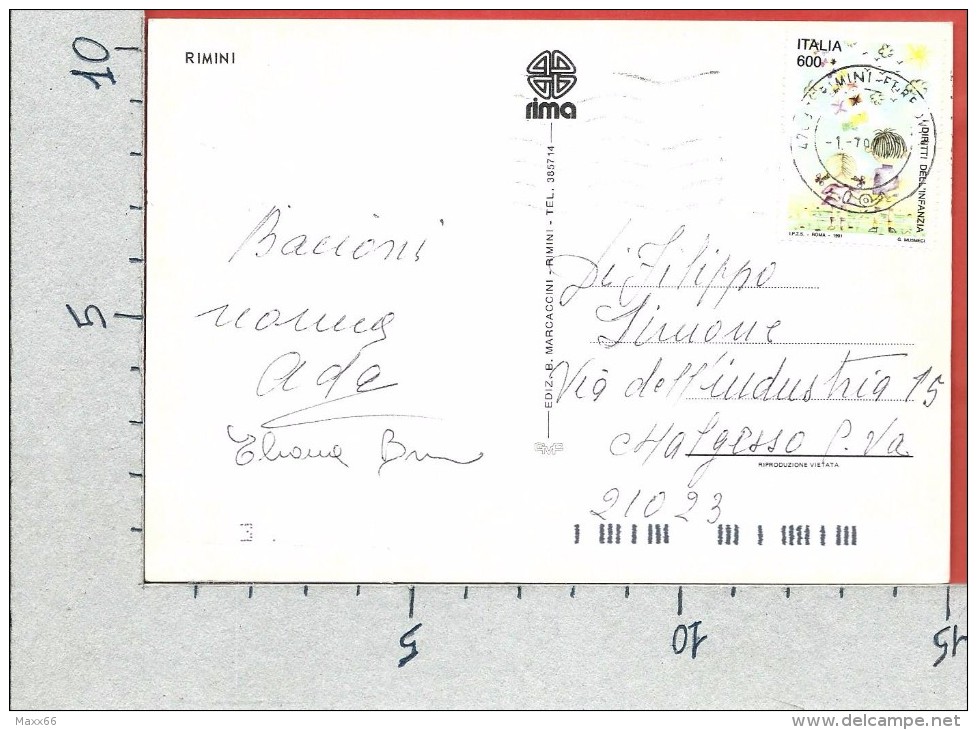 RIMINI
rima
ITALIA
600
RIMINI - FERR
-1.-70
DIRITTI DELL'INFANZIA
I.P.Z.S. - ROMA - 1991
G. MUSMECI
EDIZ. B. MARCACCINI - RIMINI - TEL. 385714
Bacioni
nonna
Ada
Eliana
Di Filippo
Simone
Via dell'industria 15
Malgesso P. Va.
RIPRODUZIONE VIETATA
21023
10
5
5
10
15
Maxx66
www.delcampe.net